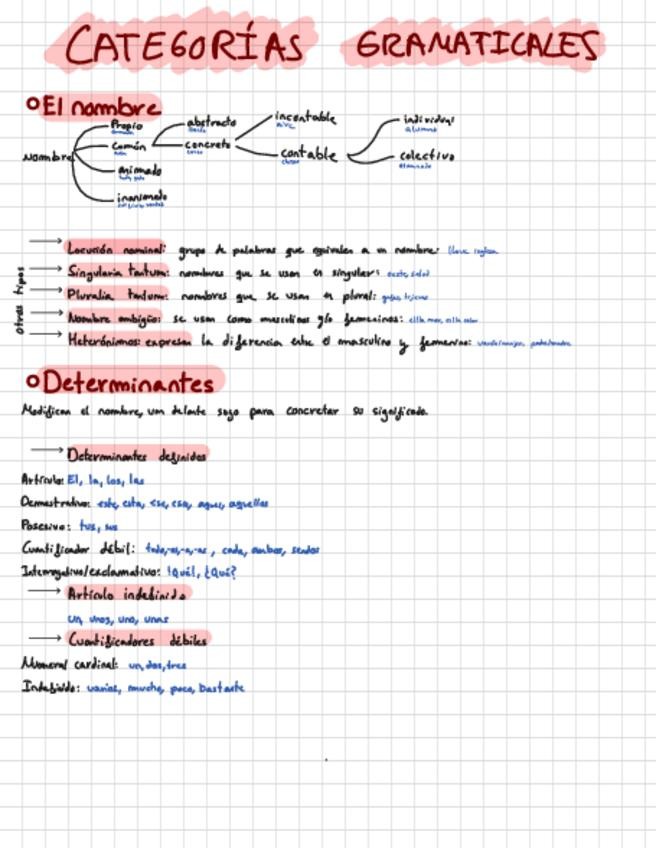 CATEGORÍAS GRAMATICALES
El nombre
Nombre
Propio
común
animado
inanimado
abstracto
concreto
incontable
nieve
contable
individual
alumno
colectivo
alumnado
otros tipos
→ Locución nominal: grupo de palabras que equivalen a un nombre: llave inglesa
→ Singularia tantum: nombres que se usan en singular: oeste, salud
→ Pluralia tantum: nombres que se usan en plural: gafas, tijeras
→ Nombre ambiguo: se usan como masculinos y/o femeninos: el/la mar, el/la calor
→ Heterónimos: expresan la diferencia entre el masculino y femenino: padre/madre
Determinantes
Modifican el nombre, van delante suyo para concretar su significado.
→ Determinantes definidos
Artículo: El, la, los, las
Demostrativo: este, esta, ese, esa, aquel, aquellas
Posesivo: tus, sus
Cuantificador débil: todo,-os,-a,-as, cada, ambos, sendos
Interrogativo/exclamativo: ¡Qué!, ¿Qué?
→ Artículo indefinido
un, unos, una, unas
→ Cuantificadores débiles
Numeral cardinal: un, dos, tres
Indefinido: varios, mucho, poco, bastante